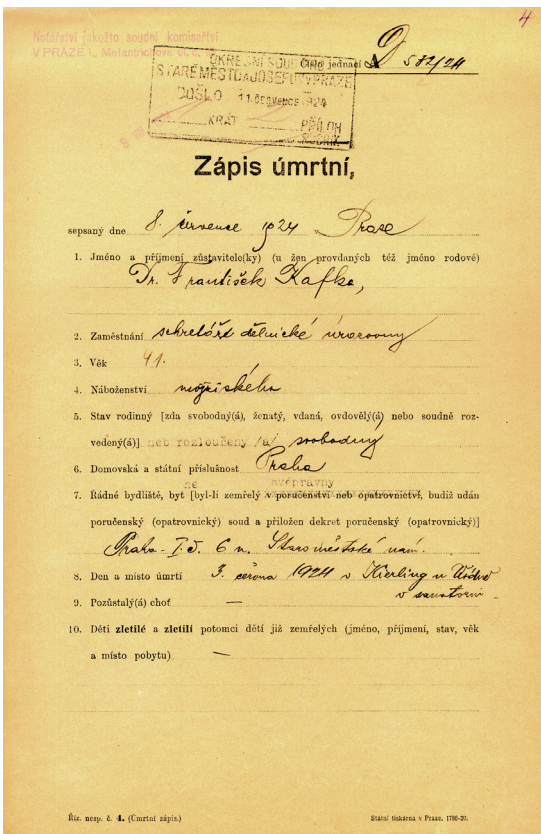 4
Notářství jakožto soudní komisařství
V PRAZE I., Melantrichova ul. č.
OKRESNÍ SOUD PRO
STARÉ MĚSTO A JOSEFOV V PRAZE
DOŠLO 11. července 1924
KRÁT PŘÍLOH
Číslo jednací D 582/24
Zápis úmrtní,
sepsaný dne 8. července 1924 v Praze
1. Jméno a příjmení zůstavitele(ky) (u žen provdaných též jméno rodové)
Dr. František Kafka,
2. Zaměstnání sekretář dělnické úrazovny
3. Věk 41.
4. Náboženství mojžíského
5. Stav rodinný [zda svobodný(á), ženatý, vdaná, ovdovělý(á) nebo soudně roz-
vedený(á)] neb rozloučený /a/ svobodný
6. Domovská a státní příslušnost Praha
ne svéprávny
7. Řádné bydliště, byt [byl-li zemřelý v poručenství neb opatrovnictví, budiž udán
poručenský (opatrovnický) soud a přiložen dekret poručenský (opatrovnický)]
Praha - I. č. 6 n. Staroměstské nám.
8. Den a místo úmrtí 3. června 1924 v Kierling u Vídně
v sanatoriu.
9. Pozůstalý(á) choť —
10. Děti zletilé a zletilí potomci dětí již zemřelých (jméno, příjmení, stav, věk
a místo pobytu) —
Říz. nesp. č. 4. (Úmrtní zápis.)
Státní tiskárna v Praze. 1786-20.